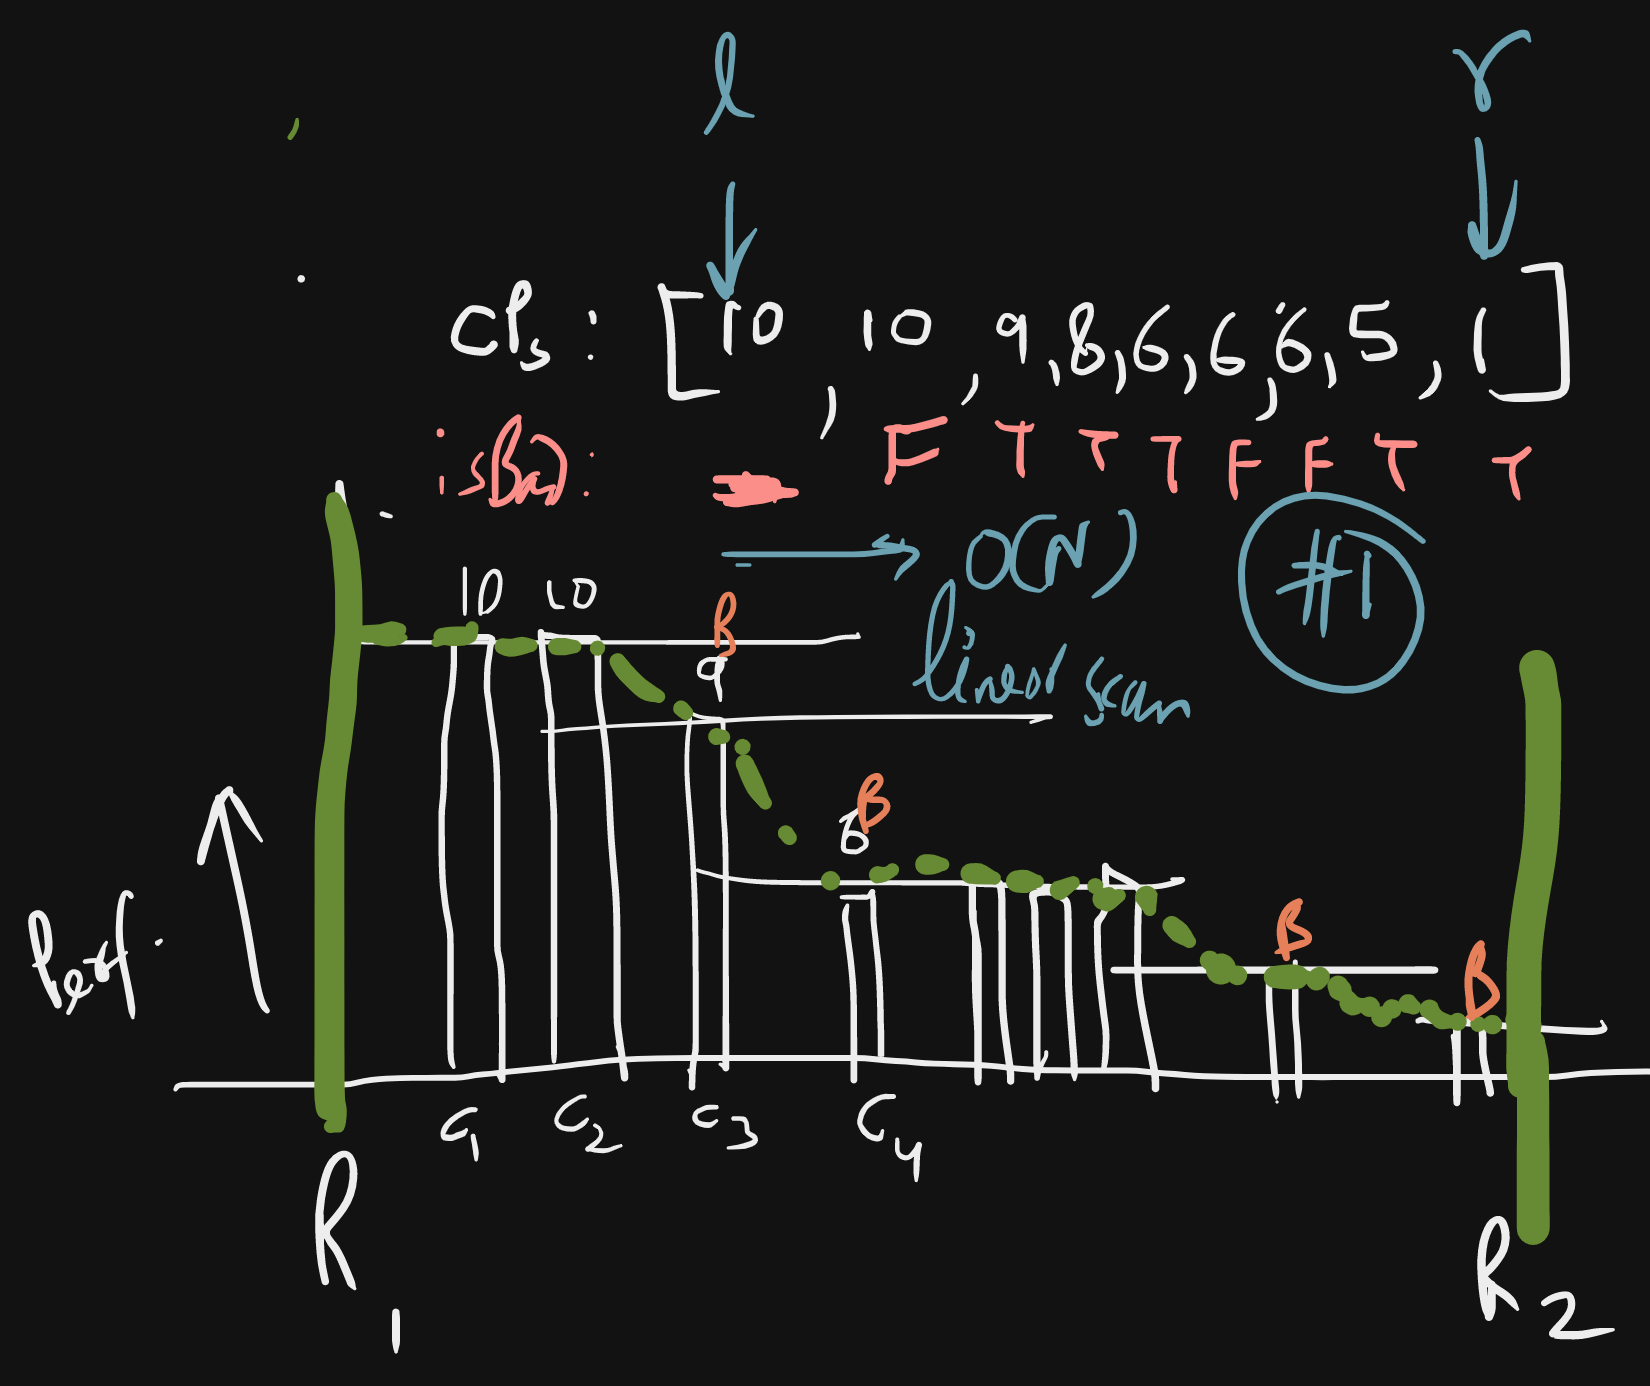 l r
CPs: [10, 10, 9, 8, 6, 6, 6, 5, 1]
isBad: - F T T T F F T T
O(N) #1
linear scan
10 10 B
9
B
6
B
B
Perf.
C1 C2 C3 C4
R1 R2